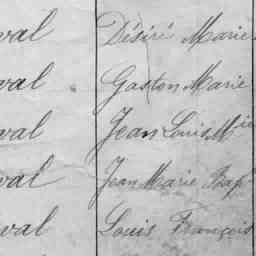 val Désiré Marie
val Gaston Marie
val Jean Louis Mie
val Jean Marie Bap
val Louis François